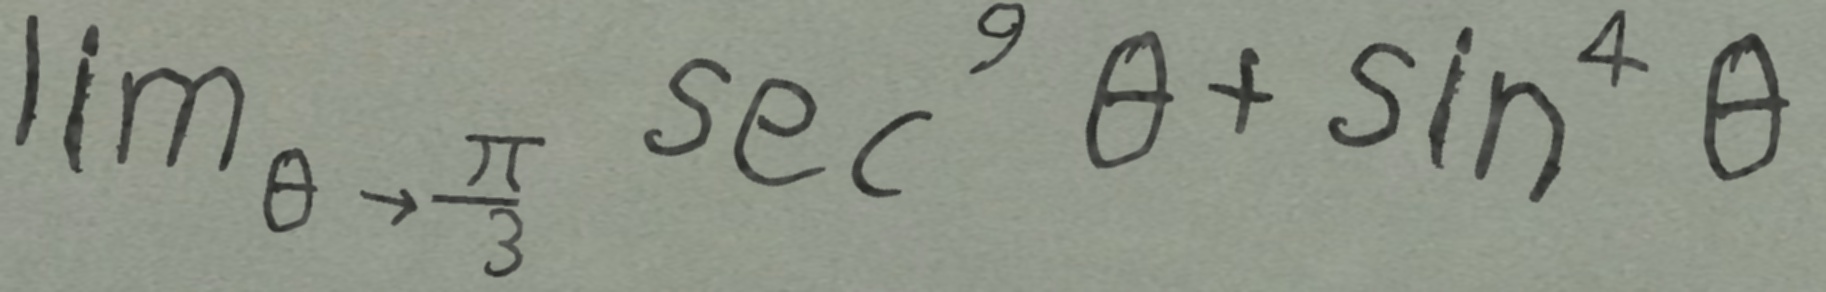 lim_{θ→\frac{π}{3}} sec^9 θ + sin^4 θ